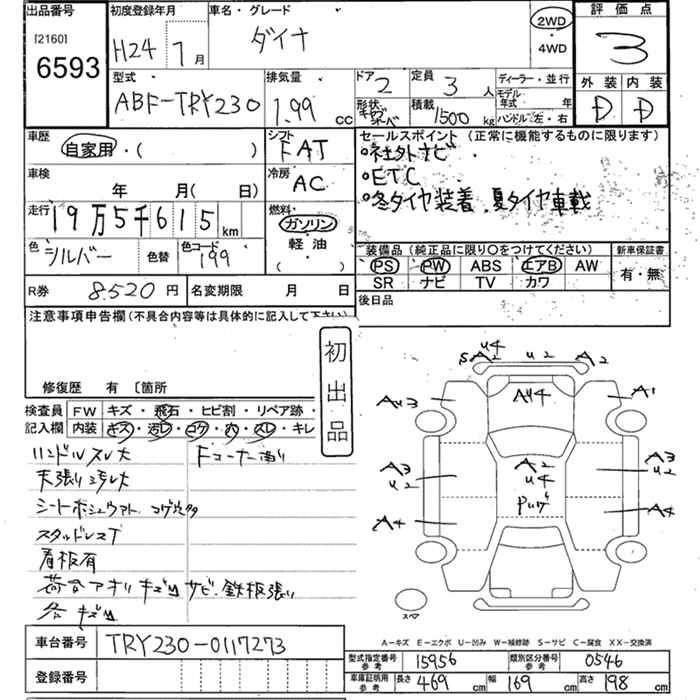 出品番号
[2160]
6593
初度登録年月
H24 7月
車名・グレード
ダイナ
2WD
・4WD
評価点
3
外装 内装
D D
型式
ABF-TRY230
排気量
1.99 cc
ドア
2
形状
定員
3 人
積載
1500 kg
ディーラー・並行
モデル年式 年
ハンドル 左・右
車歴
自家用・( )
シフト
FAT
セールスポイント (正常に機能するものに限ります)
○社外ナビ
○ETC
○冬タイヤ装着、夏タイヤ車載
車検
年 月( 日)
冷房
AC
走行
19万5千615 km
燃料
ガソリン
・
軽油
( )
色
シルバー
色替
色コード
199
装備品 (純正品に限り○をつけてください)
PS PW ABS エアB AW
SR ナビ TV カワ
新車保証書
有・無
R券 8520 円
名変期限 月 日
後日品
注意事項申告欄 (不具合内容等は具体的に記入して下さい)
初出品
修復歴 有 〔箇所
検査員記入欄
FW キズ・飛石・ヒビ割・リペア跡・
内装 キズ・汚レ・コゲ・穴・スレ・キレ
ハンドルスレ大
Fコーナー有り
天張り汚レ大
シート
スタッドレスT
看板有
荷台アオリキズ凹サビ、鉄板張り
各キズ凹
A2 U4
S
U2
A2
AU3
AU4
A1
A3
U2
A2
U4
A3
U2
A4
A4
スペア
A-キズ E-エクボ U-凹み W-補修跡 S-サビ C-腐食 XX-交換済
車台番号 TRY230-0117273
登録番号
型式指定番号 参考 15956
類別区分番号 参考 0546
車庫証明用 参考 長さ 469 cm 幅 169 cm 高さ 198 cm